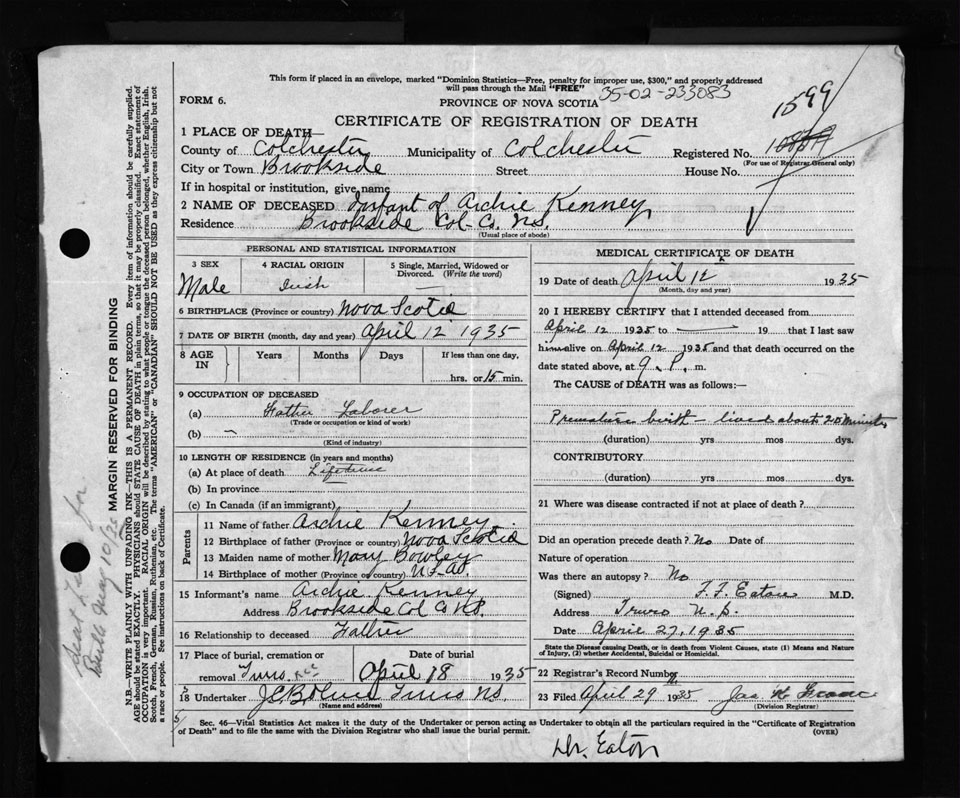 This form if placed in an envelope, marked "Dominion Statistics—Free, penalty for improper use, $300," and properly addressed
will pass through the Mail "FREE"
35-02-233083
1599
FORM 6.
PROVINCE OF NOVA SCOTIA
CERTIFICATE OF REGISTRATION OF DEATH
1 PLACE OF DEATH—
County of Colchester Municipality of Colchester Registered No.
(For use of Registrar General only)
City or Town Brookside Street House No.
If in hospital or institution, give name
2 NAME OF DECEASED Infant of Archie Kenney
Residence Brookside Col. Co. N.S.
(Usual place of abode)
PERSONAL AND STATISTICAL INFORMATION
3 SEX 4 RACIAL ORIGIN 5 Single, Married, Widowed or
Divorced. (Write the word)
Male Irish
6 BIRTHPLACE (Province or country) Nova Scotia
7 DATE OF BIRTH (month, day and year) April 12 1935
8 AGE IN Years Months Days If less than one day,
hrs. or 15 min.
9 OCCUPATION OF DECEASED
(a) Father Laborer
(Trade or occupation or kind of work)
(b) —
(Kind of industry)
10 LENGTH OF RESIDENCE (in years and months)
(a) At place of death Lifetime
(b) In province
(c) In Canada (if an immigrant)
Parents
11 Name of father Archie Kenney
12 Birthplace of father (Province or country) Nova Scotia
13 Maiden name of mother Mary Bowley
14 Birthplace of mother (Province or country)
15 Informant's name Archie Kenney
Address Brookside Col Co N.S.
16 Relationship to deceased Father
17 Place of burial, cremation or removal Truro Date of burial April 18 1935
18 Undertaker Truro N.S.
(Name and address)
MEDICAL CERTIFICATE OF DEATH
19 Date of death April 12 1935
(Month, day and year)
20 I HEREBY CERTIFY that I attended deceased from
April 12 1935 to — 19 that I last saw
him alive on April 12 1935 and that death occurred on the
date stated above, at 9 P. m.
The CAUSE of DEATH was as follows:—
Premature birth — lived about 20 minutes
(duration) yrs mos dys.
CONTRIBUTORY
(duration) yrs mos dys.
21 Where was disease contracted if not at place of death?
Did an operation precede death? No Date of
Nature of operation
Was there an autopsy? No
(Signed) F. F. Eaton M.D.
Address Truro N.S.
Date April 27, 1935
State the Disease causing Death, or in death from Violent Causes, state (1) Means and Nature
of Injury, (2) whether Accidental, Suicidal or Homicidal.
22 Registrar's Record Number
23 Filed April 29 1935
(Division Registrar)
Sec. 46—Vital Statistics Act makes it the duty of the Undertaker or person acting as Undertaker to obtain all the particulars required in the "Certificate of Registration
of Death" and to file the same with the Division Registrar who shall issue the burial permit.
(OVER)
Dr. Eaton
MARGIN RESERVED FOR BINDING
N.B.—WRITE PLAINLY WITH UNFADING INK—THIS IS A PERMANENT RECORD. Every item of information should be carefully supplied.
AGE should be stated EXACTLY. PHYSICIANS should STATE CAUSE OF DEATH in plain terms, so that it may be properly classified. Exact statement of
OCCUPATION is very important. RACIAL ORIGIN will be described by stating to what people or tongue the deceased person belonged, whether English, Irish,
Scotch, French, German, Russian, Ruthenian, etc. The terms "AMERICAN" or "CANADIAN" SHOULD NOT BE USED as they express citizenship but not
a race or people. See instructions on back of Certificate.